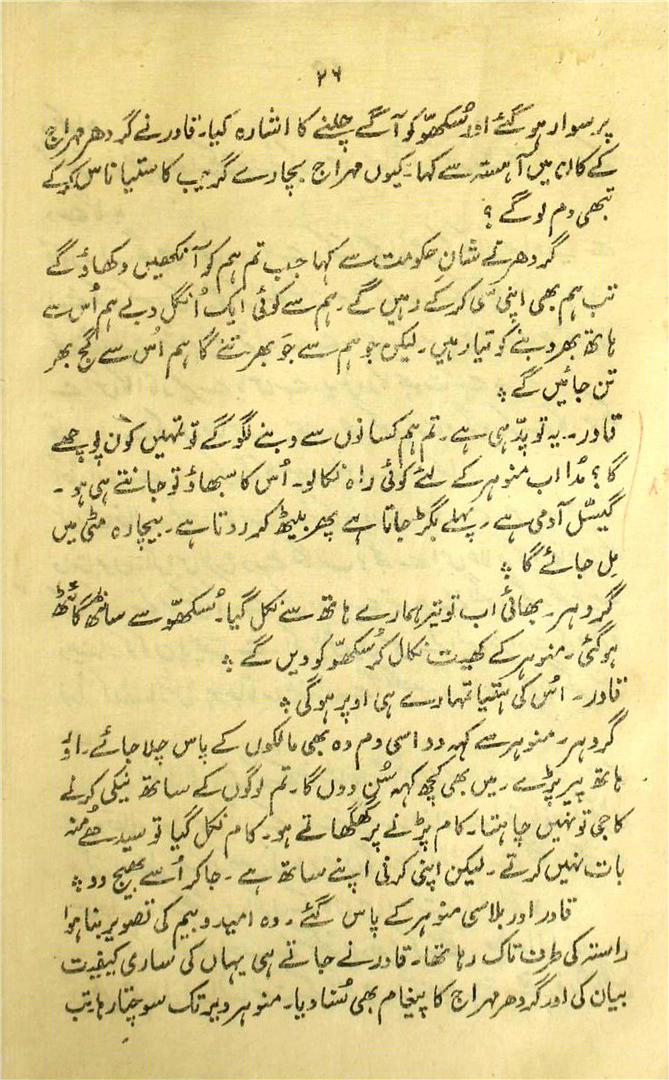 ۲۶
پر سوار ہو گئے اور سُکھّو کو آگے چلنے کا اشارہ کیا۔ قادر نے گردھر مہراج
کے کان میں آہستہ سے کہا۔ کیوں مہراج بچارے گریب کا ستیاناس کر کے
تبھی دم لو گے ؟
گردھر نے شانِ حکومت سے کہا جب تم ہم کو آنکھیں دکھاؤ گے
تب ہم بھی اپنی سی کر کے رہیں گے۔ ہم سے کوئی ایک اُنگل دبے ہم اُس سے
ہاتھ بھر دبنے کو تیار ہیں۔ لیکن جو ہم سے جَو بھر تنے گا ہم اُس سے گج بھر
تن جائیں گے ؞
قادر۔ یہ تو بدّ ہی ہے۔ تم ہم کسانوں سے دبنے لگو گے تو تمہیں کون پوچھے
گا؟ مُدا اب منوہر کے لئے کوئی راہ نکالو۔ اُس کا سبھاؤ تو جانتے ہی ہو۔
گسیّل آدمی ہے۔ پہلے بگڑ جاتا ہے پھر بیٹھ کر روتا ہے۔ بیچارہ مٹی میں
مِل جائے گا ؞
گردہر۔ بھائی اب تو تیر ہمارے ہاتھ سے نکل گیا۔ سُکھّو سے سانٹھ گانٹھ
ہو گئی۔ منوہر کے کھیت نکال کر سُکھّو کو دیں گے ؞
قادر۔ اُس کی ہتیا تمہارے ہی اوپر ہوگی ؞
گردہر۔ منوہر سے کہہ دو اسی دم وہ بھی مالکوں کے پاس چلا جائے۔ اؤر
ہاتھ پیر پڑے۔ میں بھی کچھ کہہ سُن دوں گا۔ تم لوگوں کے ساتھ نیکی کرنے
کا جی تو نہیں چاہتا۔ کام پڑنے پر گھگھاتے ہو۔ کام نکل گیا تو سیدھے مُنہ
بات نہیں کرتے۔ لیکن اپنی کرنی اپنے ساتھ ہے۔ جا کر اُسے بھیج دو ؞
قادر اور بلاسی منوہر کے پاس گئے۔ وہ امید و بیم کی تصویر بنا ہوا
راستہ کی طرف تاک رہا تھا۔ قادر نے جاتے ہی یہاں کی ساری کیفیت
بیان کی اور گردھر مہراج کا پیغام بھی سُنا دیا۔ منوہر دیر تک سوچتا رہا تب